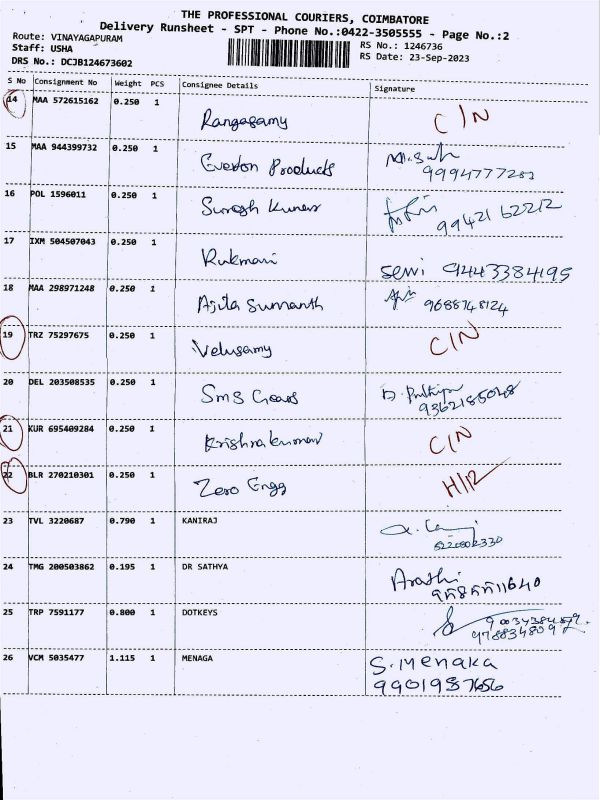 THE PROFESSIONAL COURIERS, COIMBATORE
Delivery Runsheet - SPT - Phone No.:0422-3505555 - Page No.:2
Route: VINAYAGAPURAM
RS No.: 1246736
Staff: USHA
RS Date: 23-Sep-2023
DRS No.: DCJB124673602
S No Consignment No Weight PCS Consignee Details Signature
14 MAA 572615162 0.250 1 Rangasamy C/N
15 MAA 944399732 0.250 1 Everton Products
9994777203
16 POL 1596011 0.250 1 Suresh Kumar
99421 62212
17 IXM 504507043 0.250 1 Rukmani Selvi 9443384195
18 MAA 298971248 0.250 1 Ajita Sumanth 9688748124
19 TRZ 75297675 0.250 1 Velusamy C/N
20 DEL 203508535 0.250 1 Sms Gears
9362185048
21 KUR 695409284 0.250 1 Krishnakumar C/N
22 BLR 270210301 0.250 1 Zero Engg
23 TVL 3220687 0.790 1 KANIRAJ
24 TMG 200503862 0.195 1 DR SATHYA Arathi
25 TRP 7591177 0.800 1 DOTKEYS
26 VCM 5035477 1.115 1 MENAGA S.Menaka
9901987656